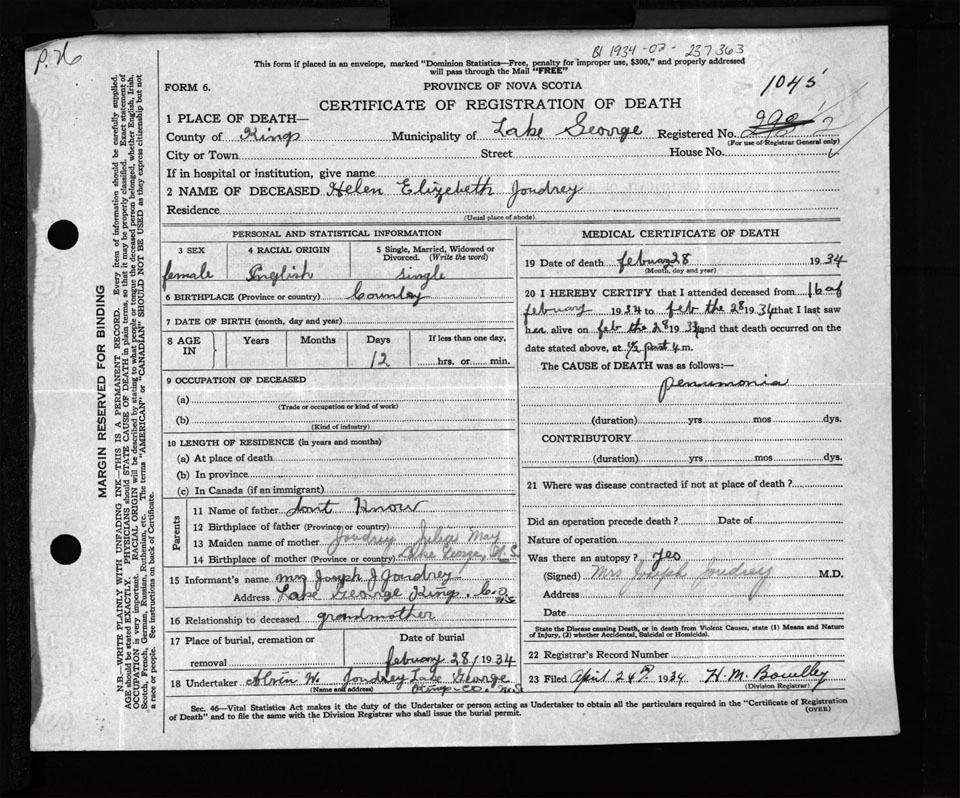 P. 26
BI 1934-02-237363
This form if placed in an envelope, marked "Dominion Statistics—Free, penalty for improper use, $300," and properly addressed
will pass through the Mail "FREE"
FORM 6.
PROVINCE OF NOVA SCOTIA
1045
CERTIFICATE OF REGISTRATION OF DEATH
1 PLACE OF DEATH—
County of Kings Municipality of Lake George Registered No.
(For use of Registrar General only)
City or Town Street House No.
If in hospital or institution, give name
2 NAME OF DECEASED Helen Elizebeth Joudrey
Residence
(Usual place of abode)
PERSONAL AND STATISTICAL INFORMATION
3 SEX 4 RACIAL ORIGIN 5 Single, Married, Widowed or Divorced. (Write the word)
female English single
6 BIRTHPLACE (Province or country) Country
7 DATE OF BIRTH (month, day and year)
8 AGE IN Years Months Days If less than one day,
12 hrs. or min.
9 OCCUPATION OF DECEASED
(a)
(Trade or occupation or kind of work)
(b)
(Kind of industry)
10 LENGTH OF RESIDENCE (in years and months)
(a) At place of death
(b) In province
(c) In Canada (if an immigrant)
Parents
11 Name of father dont Know
12 Birthplace of father (Province or country)
13 Maiden name of mother Joudrey Julia May
14 Birthplace of mother (Province or country) Lake George, N.S.
15 Informant's name Mrs Joseph J Joudrey
Address Lake George Kings. Co N.S
16 Relationship to deceased grandmother
17 Place of burial, cremation or removal Date of burial
february 28 1934
18 Undertaker Alvin W. Joudrey Lake George
(Name and address) Kings Co. N.S
MEDICAL CERTIFICATE OF DEATH
19 Date of death february 28 1934
(Month, day and year)
20 I HEREBY CERTIFY that I attended deceased from 16 of
february 1934 to feb the 28 1934 that I last saw
her alive on feb the 28 1934 and that death occurred on
date stated above, at ½ past 4 m.
The CAUSE of DEATH was as follows:—
penumonia
(duration) yrs mos dys.
CONTRIBUTORY
(duration) yrs mos dys.
21 Where was disease contracted if not at place of death?
Did an operation precede death? Date of
Nature of operation
Was there an autopsy? yes
(Signed) Mrs Joseph Joudrey M.D.
Address
Date
State the Disease causing Death, or in death from Violent Causes, state (1) Means and Nature
of Injury, (2) whether Accidental, Suicidal or Homicidal.
22 Registrar's Record Number
23 Filed April 24th 1934 H. M.
(Division Registrar)
Sec. 46—Vital Statistics Act makes it the duty of the Undertaker or person acting as Undertaker to obtain all the particulars required in the "Certificate of Registration
of Death" and to file the same with the Division Registrar who shall issue the burial permit.
(OVER)
MARGIN RESERVED FOR BINDING
N.B.—WRITE PLAINLY WITH UNFADING INK—THIS IS A PERMANENT RECORD. Every item of information should be carefully supplied.
AGE should be stated EXACTLY. PHYSICIANS should STATE CAUSE OF DEATH in plain terms, so that it may be properly classified. Exact statement of
OCCUPATION is very important. RACIAL ORIGIN will be described by stating to what people or tongue the deceased person belonged, whether English, Irish,
Scotch, French, German, Russian, Ruthenian, etc. The terms "AMERICAN" or "CANADIAN" SHOULD NOT BE USED as they express citizenship but not
a race or people. See instructions on back of Certificate.